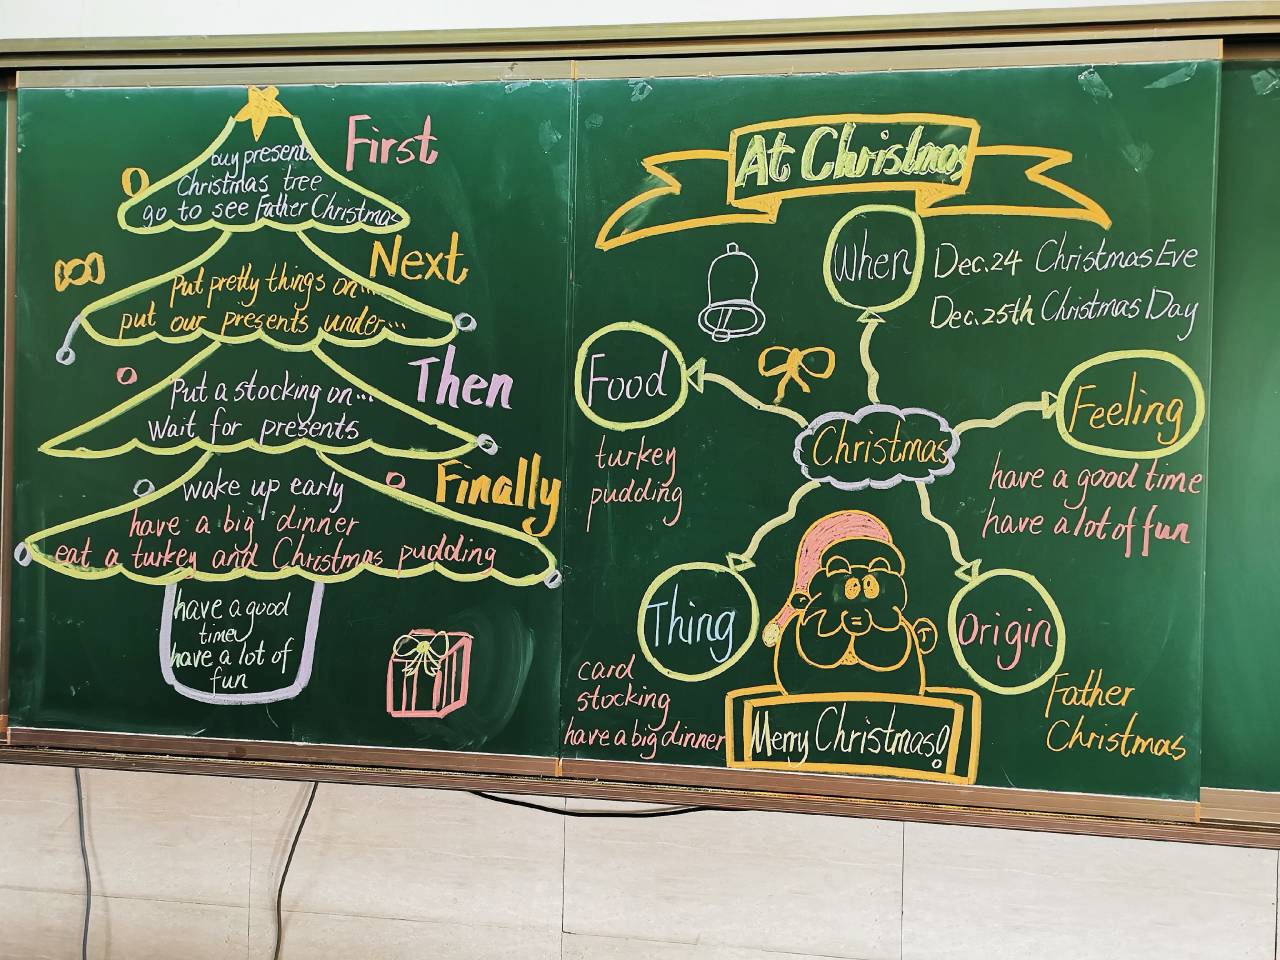 First
buy present
Christmas tree
go to see Father Christmas
Next
Put pretty things on...
put our presents under...
Then
Put a stocking on...
Wait for presents
Finally
wake up early
have a big dinner
eat a turkey and Christmas pudding
have a good
time
have a lot of
fun
At Christmas
When
Dec.24 Christmas Eve
Dec.25th Christmas Day
Food
turkey
pudding
Christmas
Feeling
have a good time
have a lot of fun
Thing
card
stocking
have a big dinner
Origin
Father
Christmas
Merry Christmas!